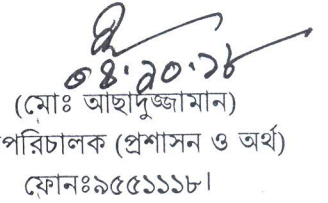 ০৪.১০.১৮
(মোঃ আছাদুজ্জামান)
পরিচালক (প্রশাসন ও অর্থ)
ফোনঃ৯৫৫১১১৮।